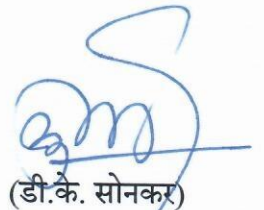 (डी.के. सोनकर)